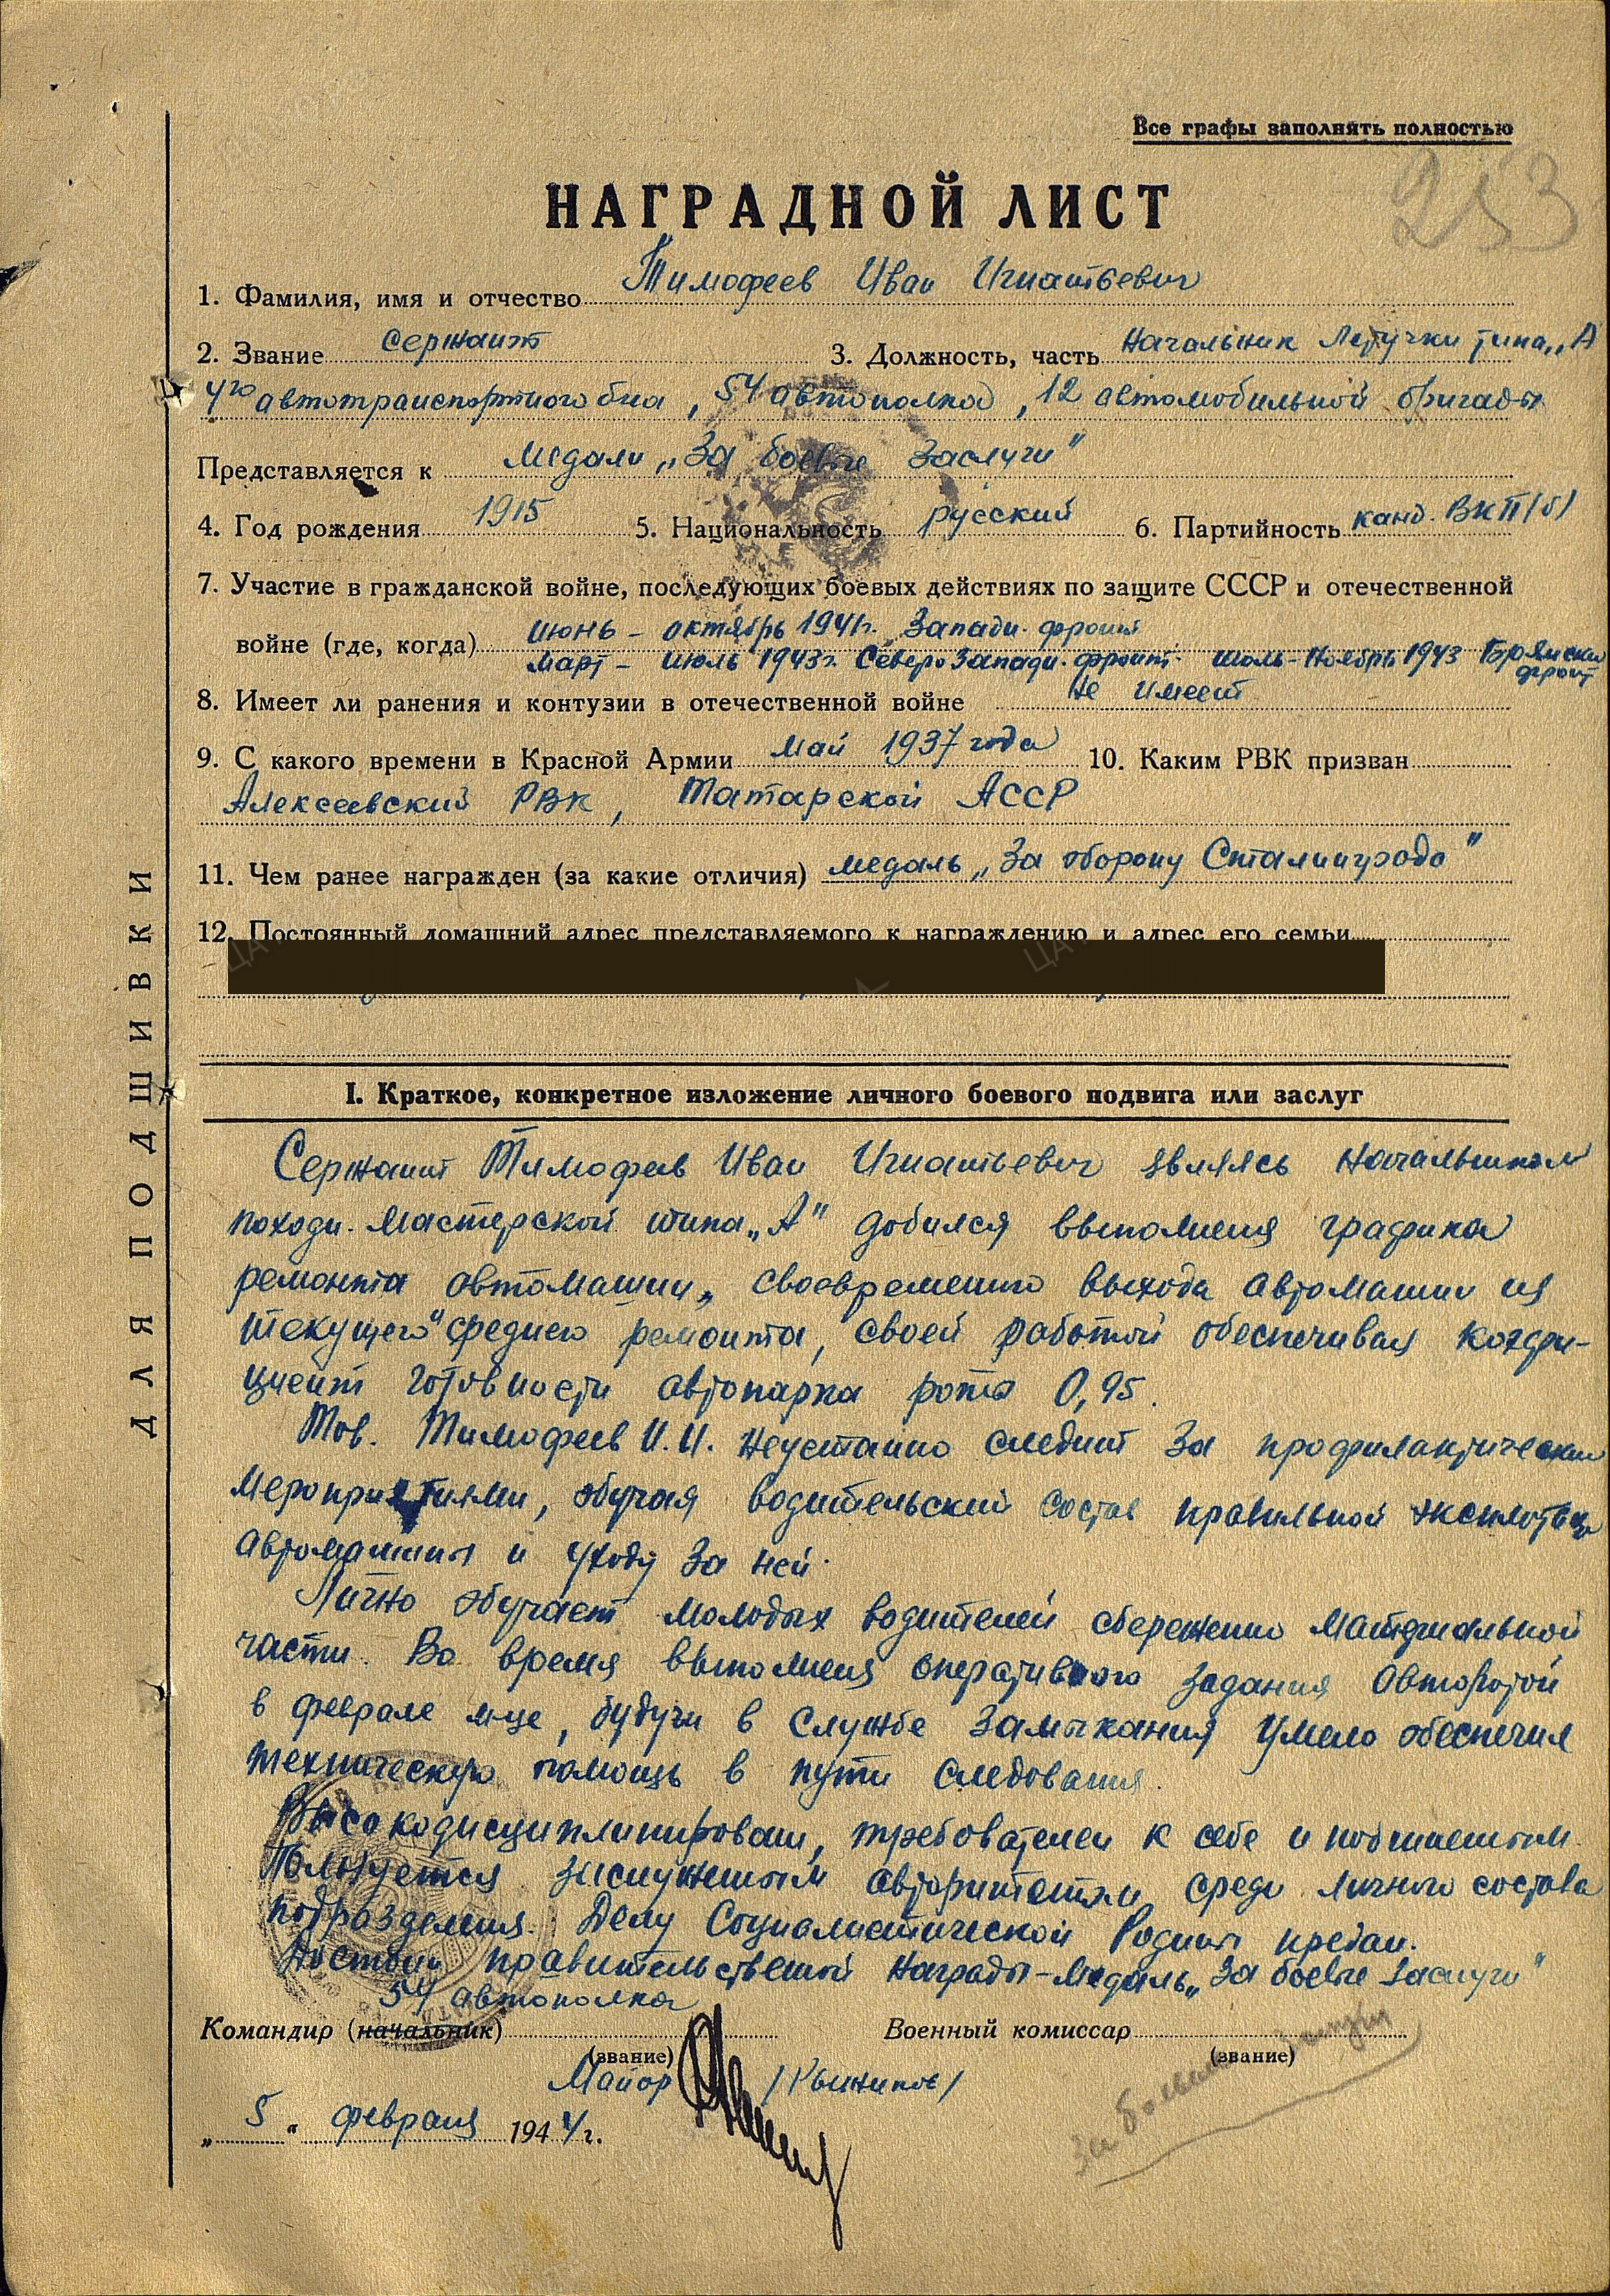 Все графы заполнять полностью
253
НАГРАДНОЙ ЛИСТ
1. Фамилия, имя и отчество Тимофеев Иван Игнатьевич
2. Звание Сержант 3. Должность, часть Начальник Летучки типа „А"
4го автотранспортного б-на, 54 автополка, 12 автомобильной бригады
Представляется к медали „За боевые заслуги"
4. Год рождения 1915 5. Национальность русский 6. Партийность канд. ВКП(б)
7. Участие в гражданской войне, последующих боевых действиях по защите СССР и отечественной
войне (где, когда) июнь – октябрь 1941г. Западн. фронт
март – июль 1943г. Северо Западн. фронт. июль – ноябрь 1943 Брянский фронт
8. Имеет ли ранения и контузии в отечественной войне не имеет
9. С какого времени в Красной Армии май 1937 года 10. Каким РВК призван
Алексеевский РВК, Татарской АССР
11. Чем ранее награжден (за какие отличия) медаль „За оборону Сталинграда"
12. Постоянный домашний адрес представляемого к награждению и адрес его семьи
ДЛЯ ПОДШИВКИ
I. Краткое, конкретное изложение личного боевого подвига или заслуг
Сержант Тимофеев Иван Игнатьевич являясь Начальником
походн. мастерской типа „А" добился выполнения графика
ремонта автомашин, своевременно выхода автомашин из
текущего среднего ремонта, своей работой обеспечивая коэффи-
циент готовности автопарка роты 0,95.
Тов. Тимофеев И.И. неустанно следит за профилактическими
мероприятиями, обучая водительский состав правильной эксплотации
автомашины и уходу за ней.
Лично обучает молодых водителей сбережению материальной
части. Во время выполнения оперативного задания Авторотой
в феврале м-це, будучи в службе замыкания умело обеспечил
техническую помощь в пути следования.
Высокодисциплинирован, требователен к себе и подчиненным.
Пользуется заслуженным авторитетом среди личного состава
подразделения. Делу Социалистической Родины предан.
Достоин правительственной награды – медаль „За боевые заслуги"
54 автополка
Командир (начальник) Военный комиссар
(звание) (звание)
Майор
„5" февраля 1944г.